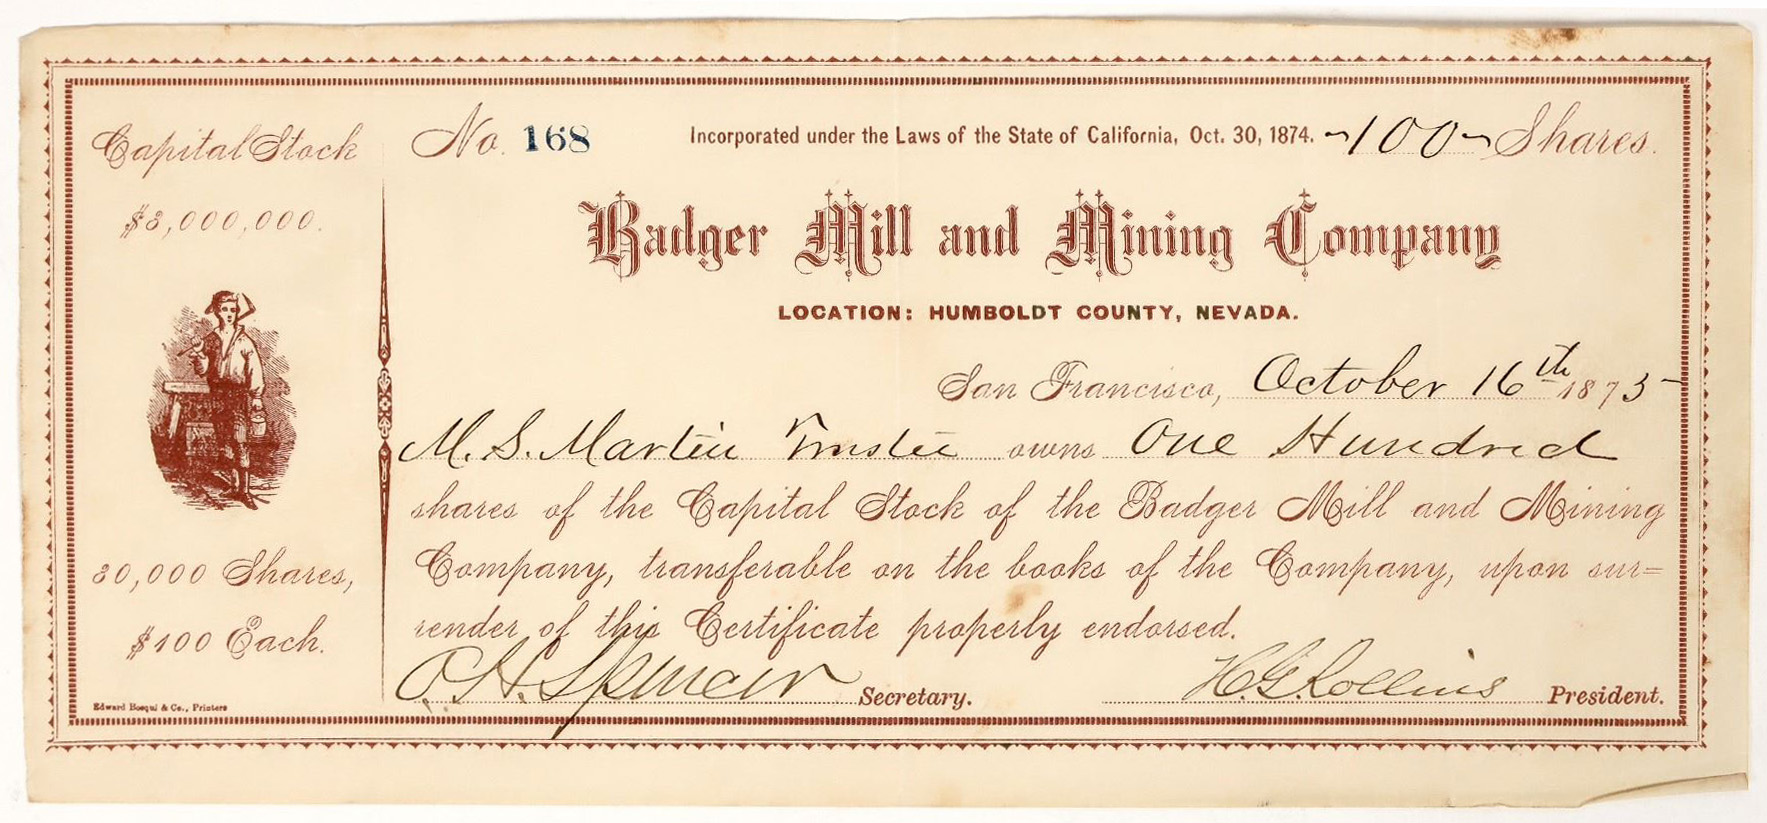 Capital Stock
$3,000,000.
30,000 Shares,
$100 Each.
Edward Bosqui & Co., Printers
No. 168 Incorporated under the Laws of the State of California, Oct. 30, 1874. ~100~ Shares.
Badger Mill and Mining Company
LOCATION: HUMBOLDT COUNTY, NEVADA.
San Francisco, October 16th 1875
M. S. Martin Trustee owns One Hundred
shares of the Capital Stock of the Badger Mill and Mining
Company, transferable on the books of the Company, upon sur=
render of this Certificate properly endorsed.
H. Spencer Secretary. H. G. Rollins President.